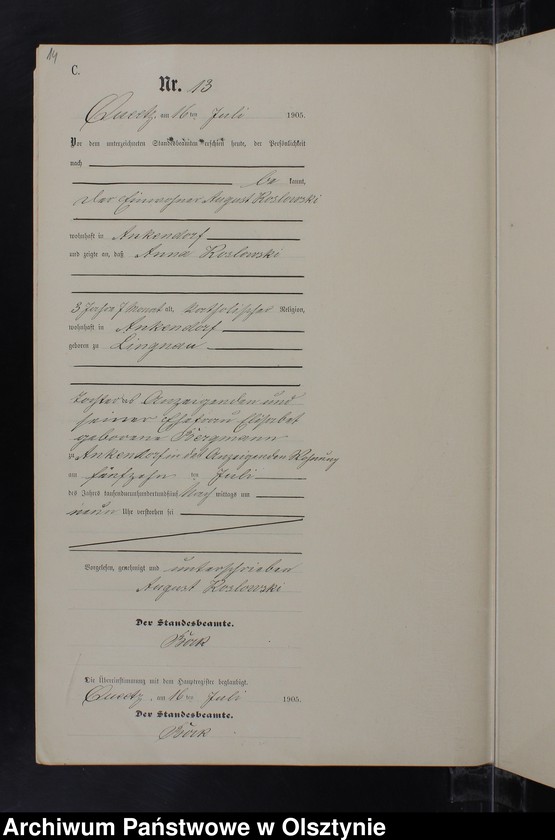 14
C.
Nr. 13
Queetz, am 16 ten Juli 1905.
Vor dem unterzeichneten Standesbeamten erschien heute, der Persönlichkeit
nach
be kannt,
der Einwohner August Koslowski
wohnhaft in Ankendorf
und zeigte an, daß Anna Koslowski
3 Jahre 7 Monat alt, katholischer Religion,
wohnhaft in Ankendorf
geboren zu Lingnau
Tochter des Anzeigenden und
seiner Ehefrau Elisabet
geborene Bergmann
zu Ankendorf in des Anzeigenden Wohnung
am fünfzehn ten Juli
des Jahres tausendneunhundertundfünf Nach mittags um
neun Uhr verstorben sei
Vorgelesen, genehmigt und unterschrieben
August Koslowski
Der Standesbeamte.
Börk
Die Übereinstimmung mit dem Hauptregister beglaubigt.
Queetz, am 16 ten Juli 1905.
Der Standesbeamte.
Börk
Archiwum Państwowe w Olsztynie